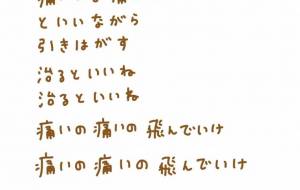 といいながら
引きはがす
治るといいね
治るといいね
痛いの痛いの飛んでいけ
痛いの痛いの飛んでいけ